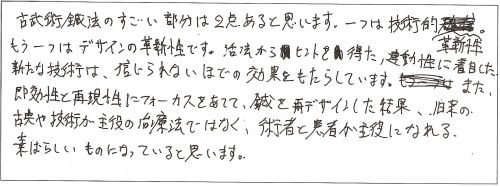 古武術鍼法のすごい部分は2点あると思います。一つは技術的革新性。
もう一つはデザインの革新性です。活法からヒントを得た、運動性に着目した
新たな技術は、信じられないほどの効果をもたらしています。また、
即効性と再現性にフォーカスをあてて、鍼を再デザインした結果、旧来の
古典や技術が主役の治療法ではなく、術者と患者が主役になれる
素晴らしいものになっていると思います。